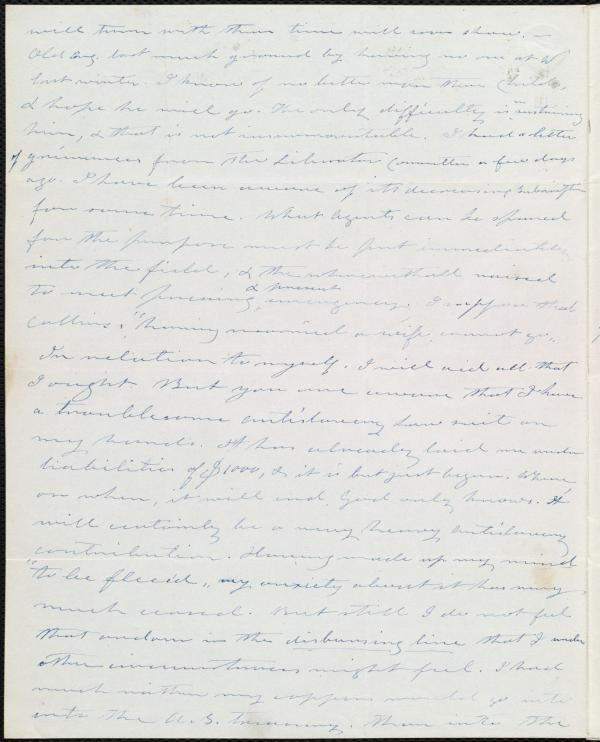 will turn with them time will soon show. —
Old Org. lost much ground by having no one at W
last winter. I know of no better man than Childs,
& hope he will go. The only difficulty is sustaining
him, & that is not insurmountable. I had a letter
of grievances from the Liberator Committee a few days
ago. I have been aware of its decreasing subscription
for some time. What Agents can be spared
for the purpose must be put immediately
into the field, & the wherewithall raised
to meet pressing & present emergency. I suppose that
Collins "having married a wife, cannot go."
In relation to myself. I will aid all that
I ought. But you are aware that I have
a troublesome antislavery law suit on
my hands. It has already laid me under
liabilities of $1000, & it is but just begun. Where
or when, it will end, God only knows. It
will certainly be a very heavy antislavery
contribution. Having made up my mind
"to be fleeced", my anxiety about it has very
much ceased. But still I do not feel
that ardour in the disbursing line that I under
other circumstances might feel. I had
much rather my coppers would go
into the A. S. treasury, than into the